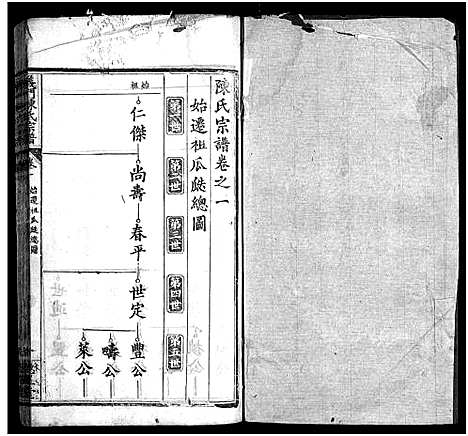 陳氏宗譜卷之一
始遷祖瓜瓞總圖
第一世
第二世
第三世
第四世
第五世
始祖
仁傑
尚壽
春平
世定
豐公
疇公
萊公
義門陳氏宗譜
卷一
始遷祖瓜瓞總圖